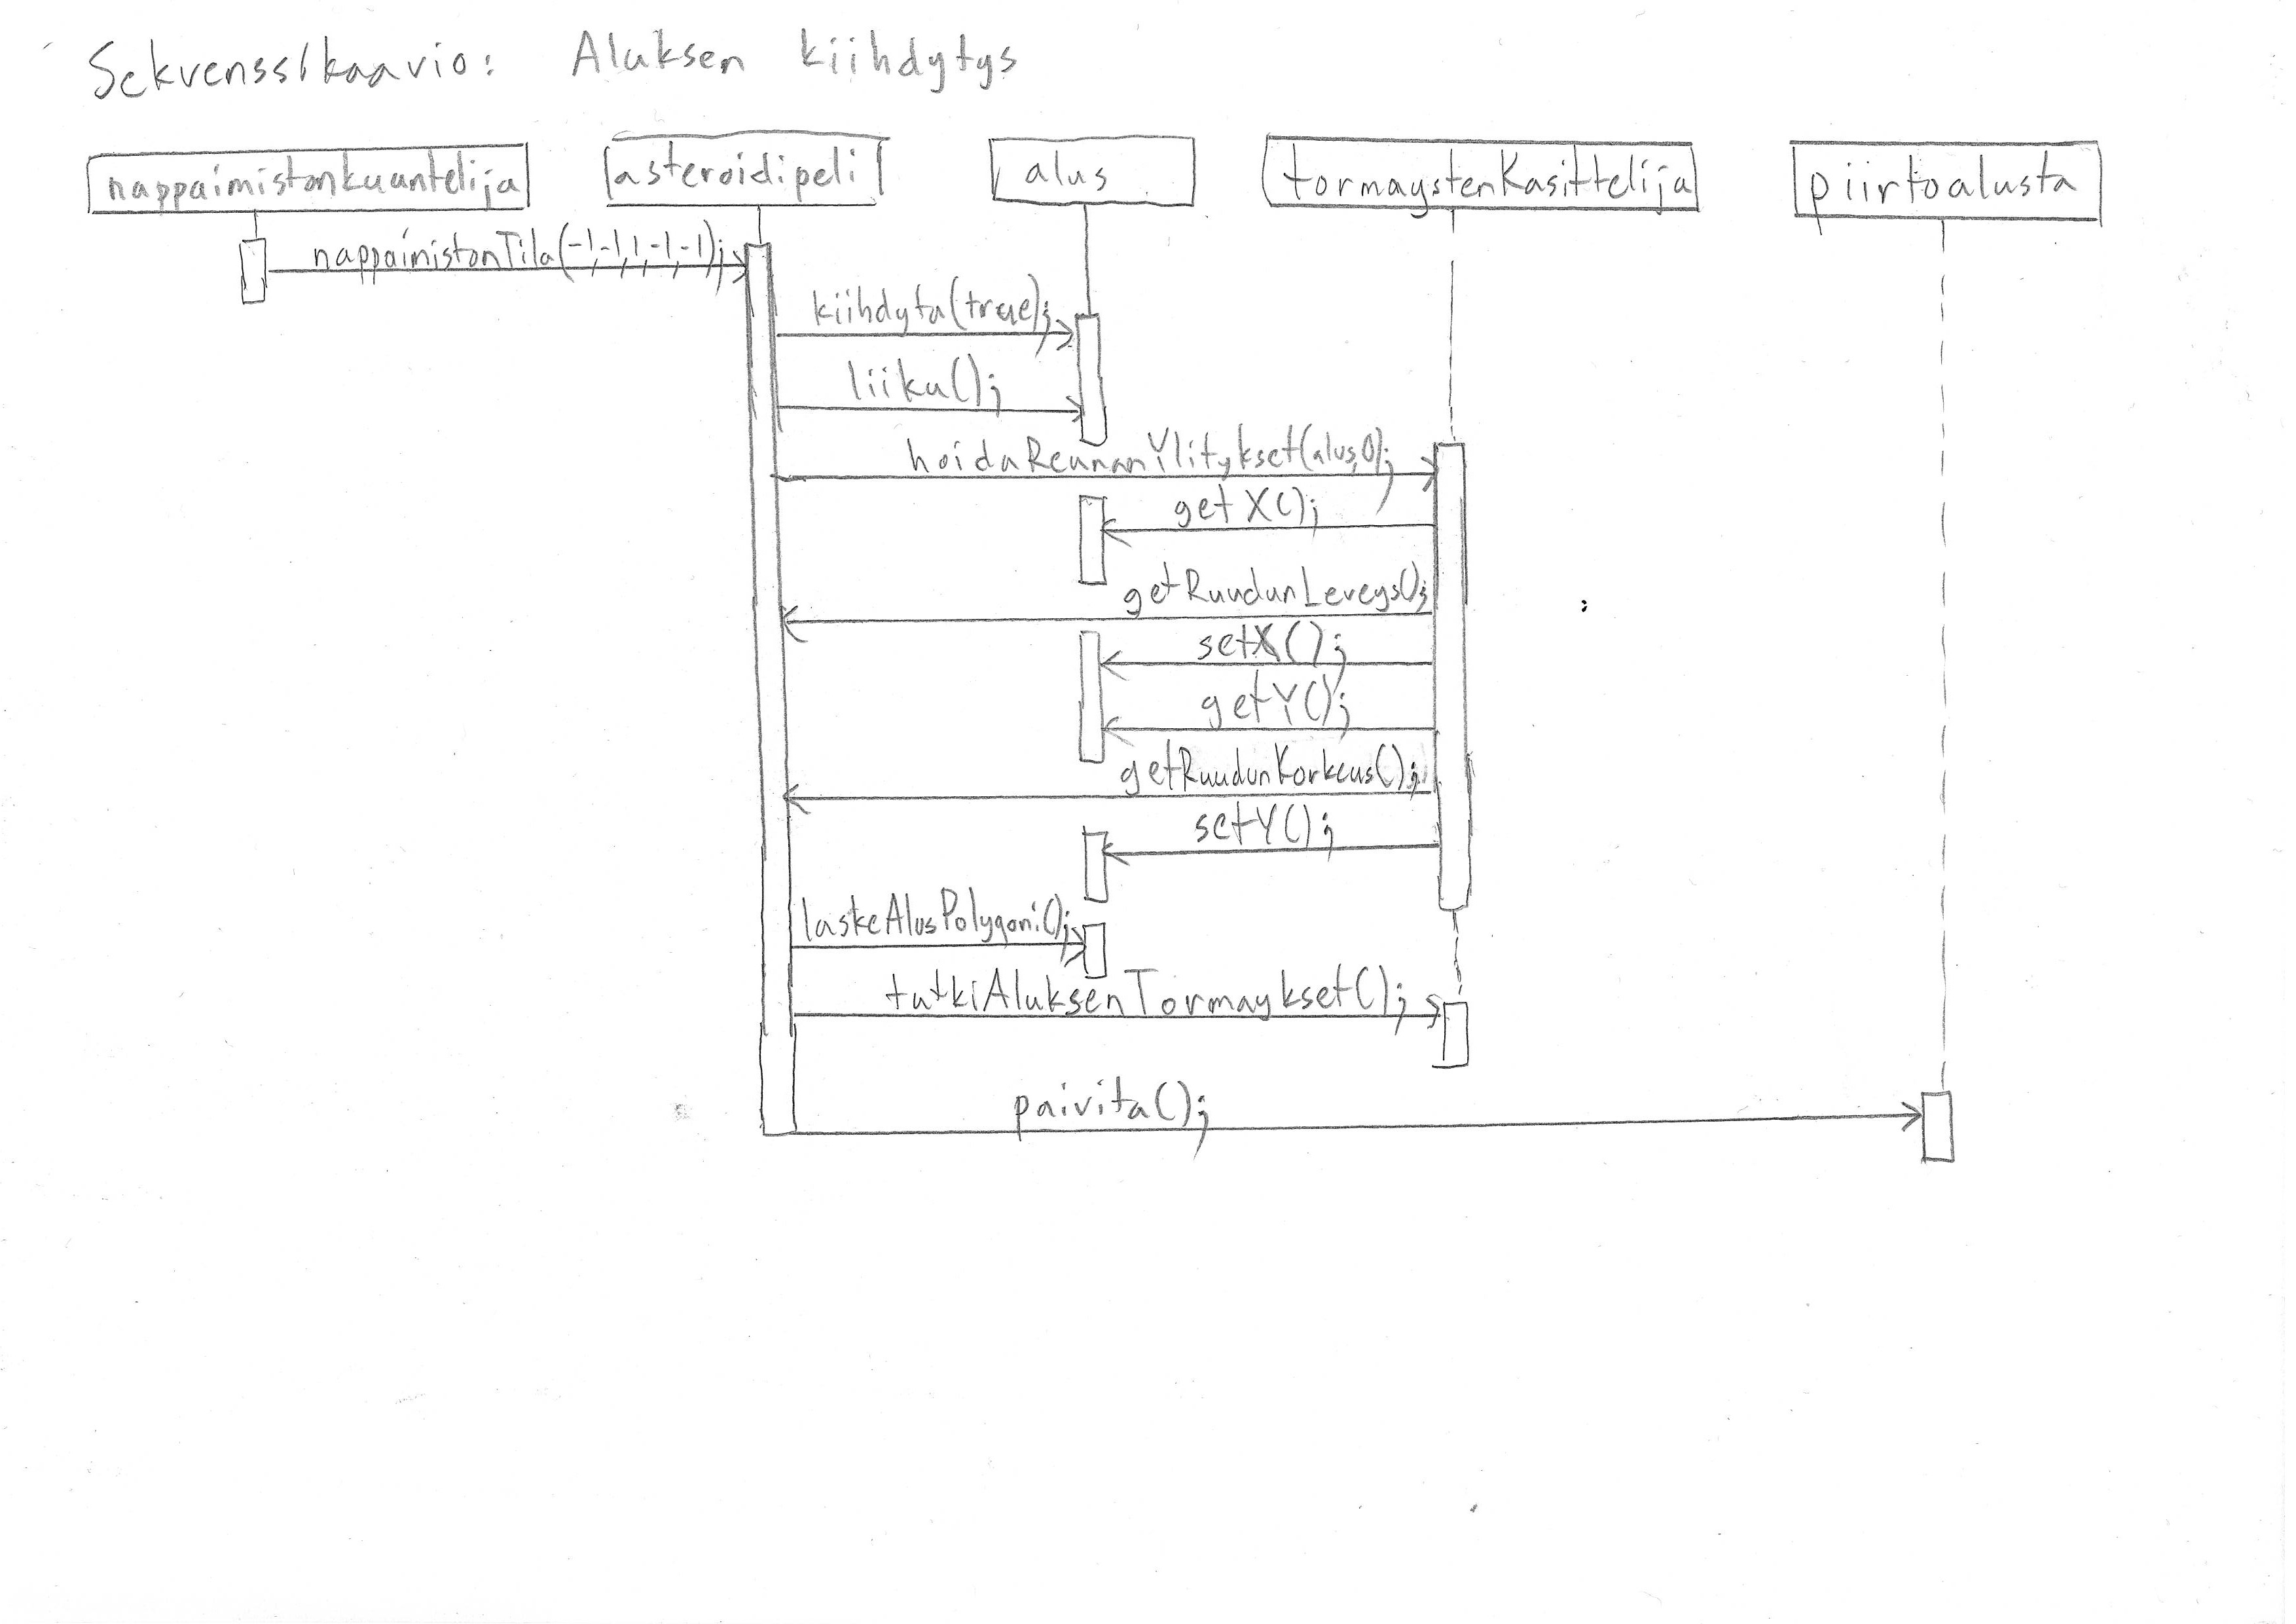 Sekvenssikaavio: Aluksen kiihdytys
nappaimistonkuuntelija asteroidipeli alus tormaystenKasittelija piirtoalusta
nappaimistonTila(-1,-1,1,-1,-1);
kiihdyta(true);
liiku();
hoidaReunanYlitykset(alus,0);
getX();
getRuudunLeveys();
setX();
getY();
getRuudunKorkeus();
setY();
laskeAlusPolygoni();
tutkiAluksenTormaykset();
paivita();